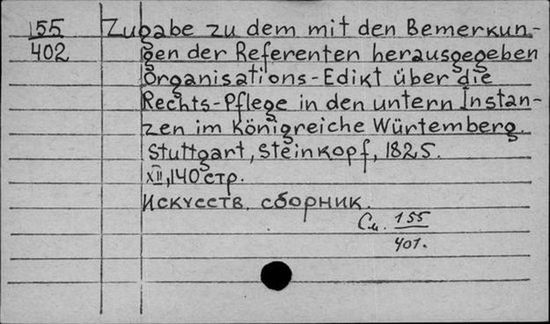 155 Zugabe zu dem mit den Bemerkun-
402 gen der Referenten herausgegeben
Organisations-Edikt über die
Rechts-Pflege in den untern Instan-
zen im Königreiche Würtemberg.
Stuttgart, Steinkopf, 1825.
XII, 140 стр.
Искусств. сборник.
См. 155
401.